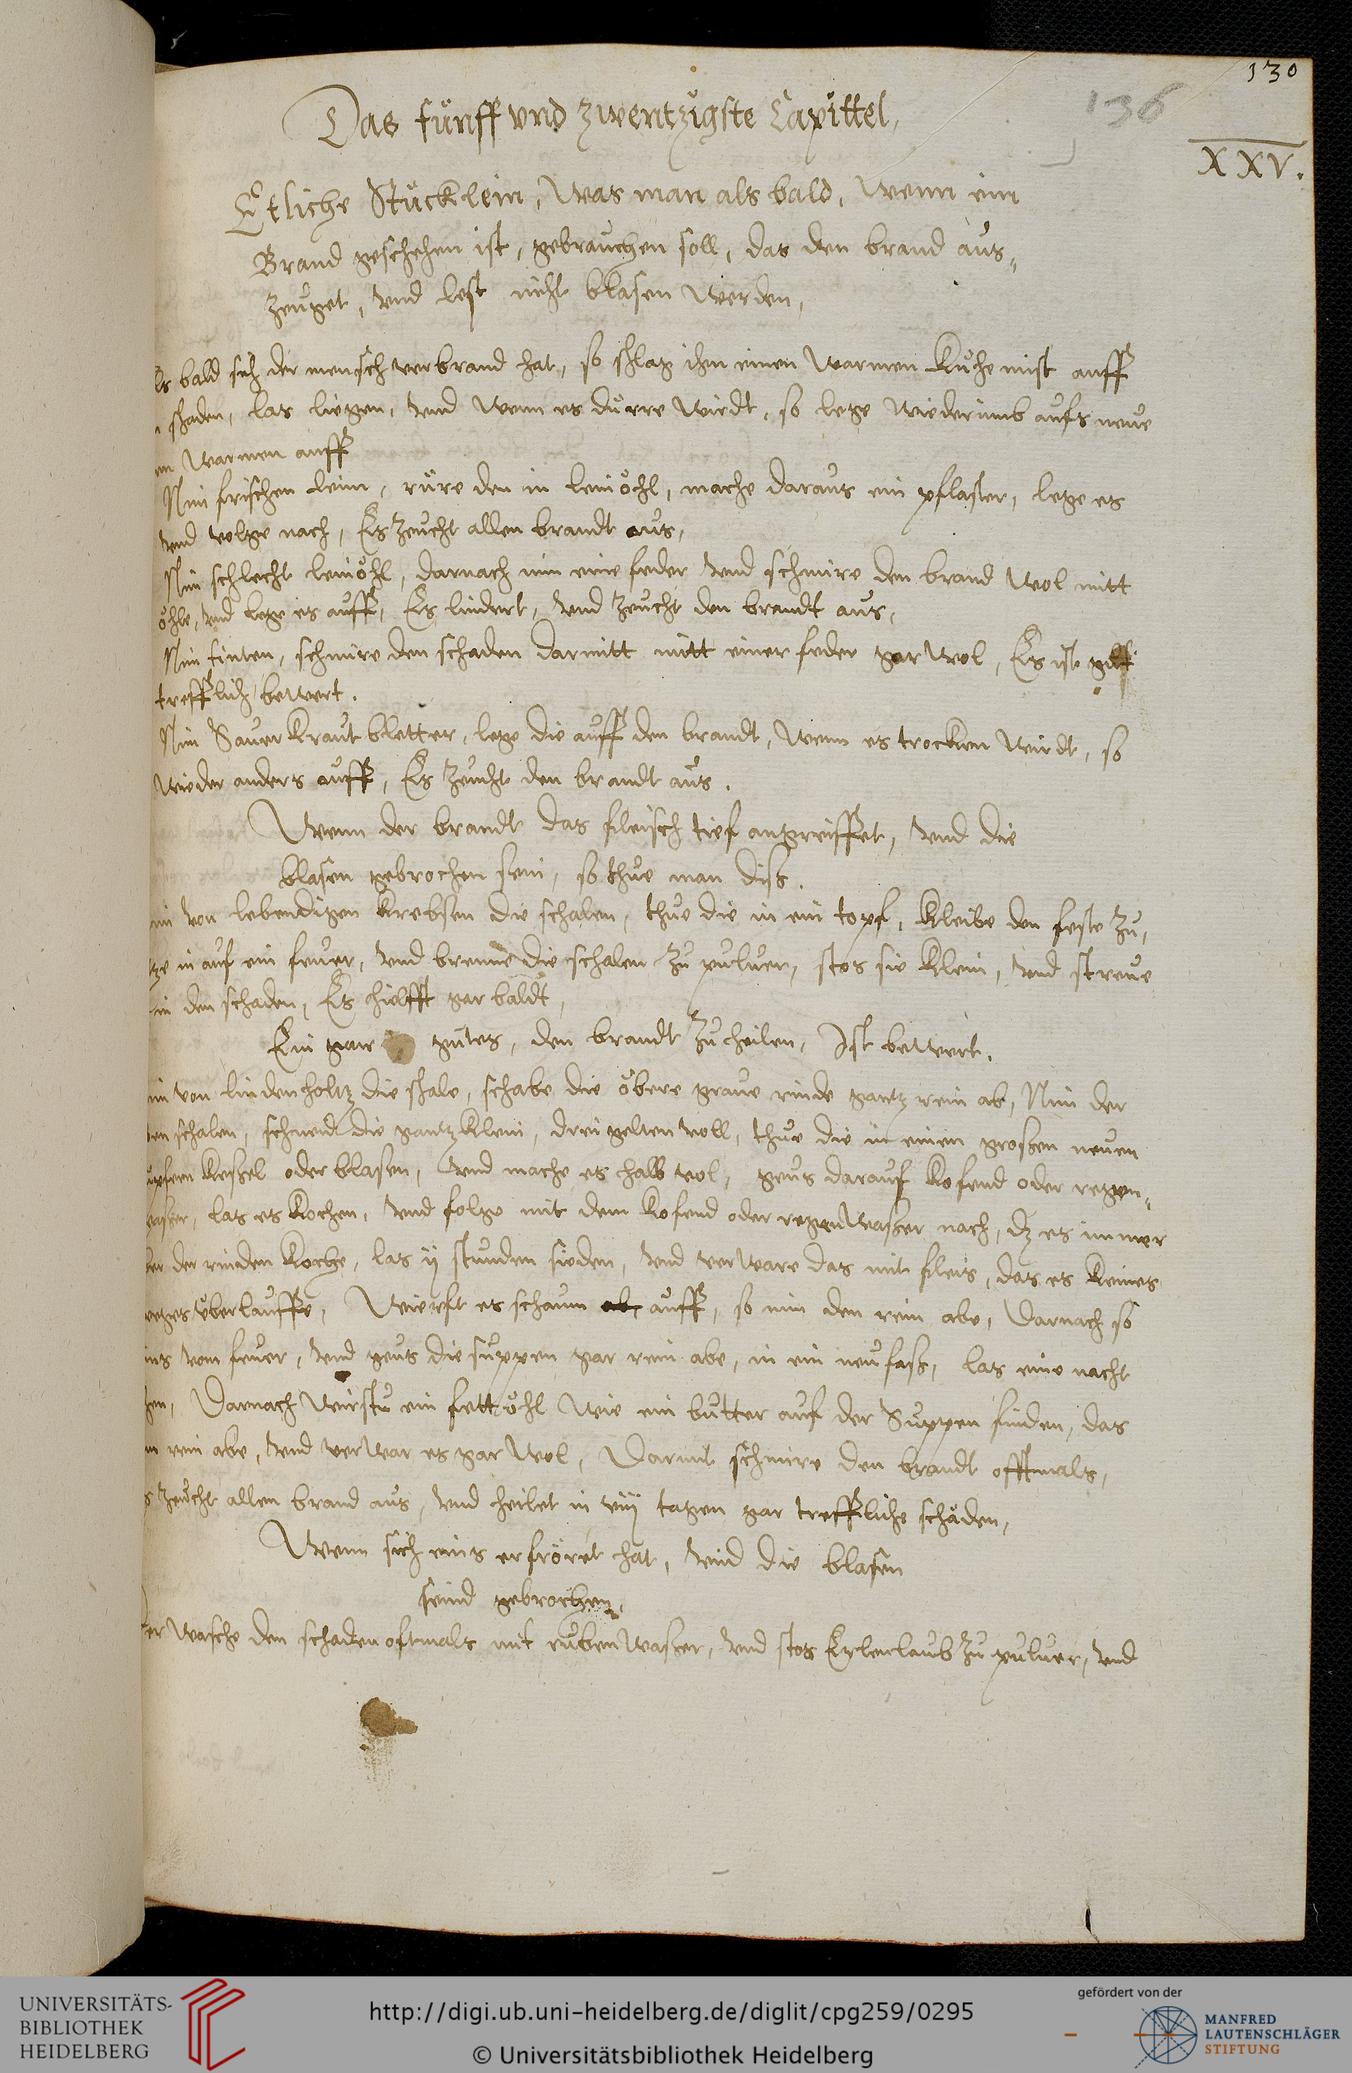 130
136
XXV.
Das fünff vnd zwentzigste Capittel,
Etliche Stücklein, Was man als bald, Wenn ein
Brand geschehen ist, gebrauchen soll, das den brand aus„
zeuget, vnd lest nicht blasen werden,
ls bald sich der mensch verbrand hat, so schlag ihm einen Warmen Kuhe mist auff
schaden, las liegen, vnd Wenn es dürre Wirdt, so lege Wiederumb aufs neue
en Warmen auff
Nim frischen leim, rüre den in leinöhl, mache daraus ein pflaster, lege es
vnd volge nach, Es zeucht allen brandt aus,
Nim schlecht leinöhl, darnach nim eine feder vnd schmire den brand Wol mitt
öhle, vnd lege es auff, Es lindert, vnd zeucht den brandt aus,
Nim tinten, schmire den schaden darmitt mitt einer feder gar Wol, Es ist
trefflich beWert.
Nim Sauer Kraut bletter, lege die auff den brandt, Wenn es trocken Wirdt, so
Wieder anders auff, Es zeucht den brandt aus.
Wenn der brandt das fleisch tief angreiffet, vnd die
blasen gebrochen sein, so thue man diß.
im von lebendigen Krebsen die schalen, thue die in ein topf, Kleibe den feste zu,
tze in auf ein feuer, vnd brenne die schalen zu puluer, stos sie Klein, vnd streue
in den schaden, Es hielfft gar baldt,
Ein gar gutes, den brandt zu heilen, Ist beWert.
im von linden holtz die schale, schabe die öbere graue rinde gantz rein ab, Nim der
ten schalen, schneid die gantz Klein, drei gelten voll, thue die in einen grossen neuen
upfern Kessel oder blasen, vnd mache es halb vol, geus darauf Kofend oder regen„
Wasser, las es Kochen, vnd folge mit dem Kofend oder regenWasser nach, dz es immer
ber der rinden Koche, las ij stunden sieden, vnd verWare das mit fleis, das es Keines
weges überlauffe, Wirfft es schaum ab auff, so nim den rein abe, Darnach so
ims vom feuer, vnd geus die suppen gar rein abe, in ein neu fass, las eine nacht
hen, Darnach Wirstu ein fett öhl Wie ein butter auf der Suppen finden, das
m rein abe, vnd verWar es gar Wol, Darmit schmire den brandt offtmals,
s zeucht allen brand aus, vnd heilet in viij tagen gar treffliche schäden,
Wenn sich eins erfröret hat, vnd die blasen
seind gebrochen,
er Wasche den schaden oftmals mit rubenWasser, vnd stos Erlenlaub zu puluer, vnd
UNIVERSITÄTS-
BIBLIOTHEK
HEIDELBERG
http://digi.ub.uni-heidelberg.de/diglit/cpg259/0295
© Universitätsbibliothek Heidelberg
gefördert von der
MANFRED
LAUTENSCHLÄGER
STIFTUNG